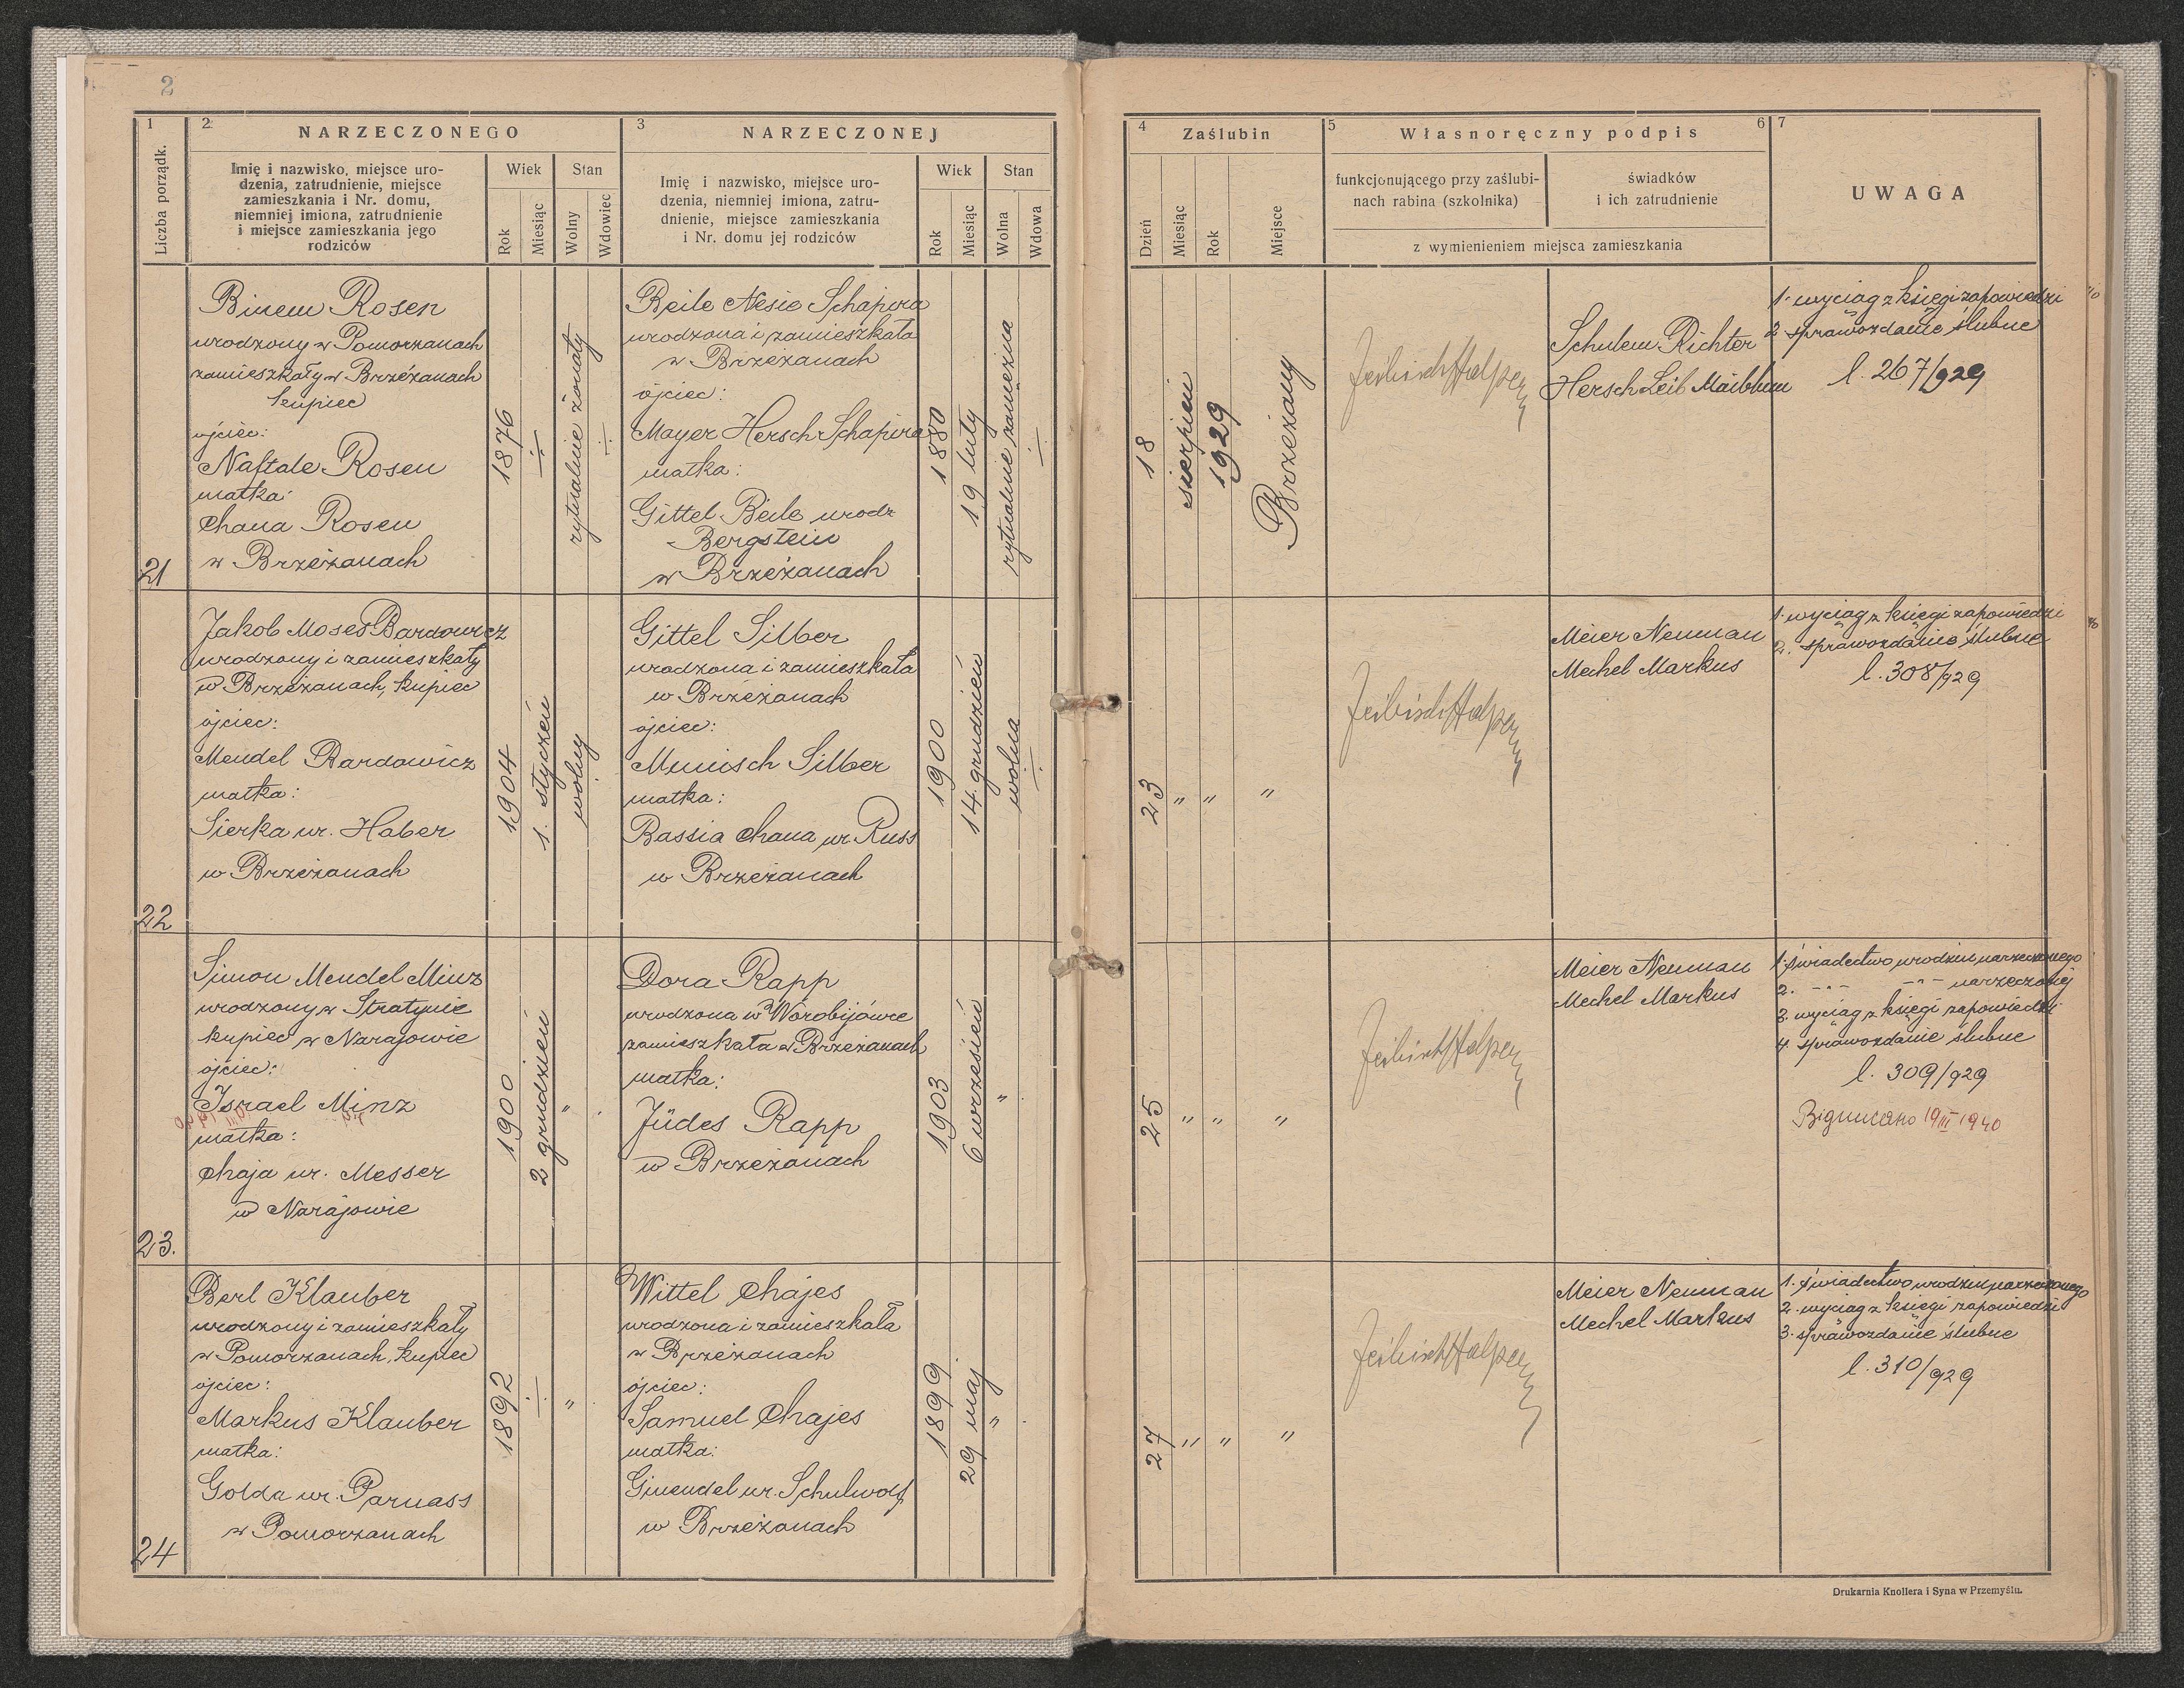 2
1
2
NARZECZONEGO
3
NARZECZONEJ
Liczba porządk.
Imię i nazwisko, miejsce uro-
dzenia, zatrudnienie, miejsce
zamieszkania i Nr. domu,
niemniej imiona, zatrudnienie
i miejsce zamieszkania jego
rodziców
Wiek
Stan
Rok
Miesiąc
Wolny
Wdowiec
Imię i nazwisko, miejsce uro-
dzenia, niemniej imiona, zatru-
dnienie, miejsce zamieszkania
i Nr. domu jej rodziców
Wiek
Stan
Rok
Miesiąc
Wolna
Wdowa
4
Zaślubin
5
Własnoręczny podpis
6
7
Dzień
Miesiąc
Rok
Miejsce
funkcjonującego przy zaślubi-
nach rabina (szkolnika)
świadków
i ich zatrudnienie
z wymienieniem miejsca zamieszkania
UWAGA
21
Binem Rosen
urodzony w Pomorzanach
zamieszkały w Brzeżanach
kupiec
ojciec:
Naftale Rosen
matka:
Chana Rosen
w Brzeżanach
1876
rytualnie żonaty
Beile Nesie Schapira
urodzona i zamieszkała
w Brzeżanach
ojciec:
Mayer Hersch Schapira
matka:
Gittel Beile urodz
Bergstein
w Brzeżanach
1880
19 luty
rytualnie zamężna
18
sierpień
1929
Brzeżany
Feibisch Halpern
Schulem Richter
Hersch Leib Maiblum
1. wyciąg z księgi zapowiedzi
2 sprawozdanie ślubne
l. 267/929
22
Jakob Moses Bardowicz
urodzony i zamieszkały
w Brzeżanach, kupiec
ojciec:
Mendel Bardowicz
matka:
Sierka ur. Haber
w Brzeżanach
1904
1. styczeń
wolny
Gittel Silber
urodzona i zamieszkała
w Brzeżanach
ojciec:
Munisch Silber
matka:
Bassia Chana ur. Russ
w Brzeżanach
1900
14. grudzień
wolna
23 " " "
Feibisch Halpern
Meier Neuman
Mechel Markus
1. wyciąg z księgi zapowiedzi
2. sprawozdanie ślubne
l. 308/929
23.
Simon Mendel Minz
urodzony w Stratynie
kupiec w Narajowie
ojciec:
Israel Minz
matka:
Chaja ur. Messer
w Narajowie
1900
2 grudzień
"
Dora Rapp
urodzona w Worobijówce
zamieszkała w Brzeżanach
matka:
Jüdes Rapp
w Brzeżanach
1903
6 wrzesień
"
25 " " "
Feibisch Halpern
Meier Neuman
Mechel Markus
1. świadectwo urodzin narzeczonego
2. -"- -"- narzeczonej
3. wyciąg z księgi zapowiedzi
4. sprawozdanie ślubne
l. 309/929
Виписано 19 III 1940
24
Berl Klauber
urodzony i zamieszkały
w Pomorzanach, kupiec
ojciec:
Markus Klauber
matka:
Golda ur. Parnass
w Pomorzanach
1892
"
Wittel Chajes
urodzona i zamieszkała
w Brzeżanach
ojciec:
Samuel Chajes
matka:
Ginendel ur. Schulwolf
w Brzeżanach
1899
29 maj
"
27 " " "
Feibisch Halpern
Meier Neuman
Mechel Markus
1. świadectwo urodzin narzeczonego
2. wyciąg z księgi zapowiedzi
3. sprawozdanie ślubne
l. 310/929
Drukarnia Knollera i Syna w Przemyślu.